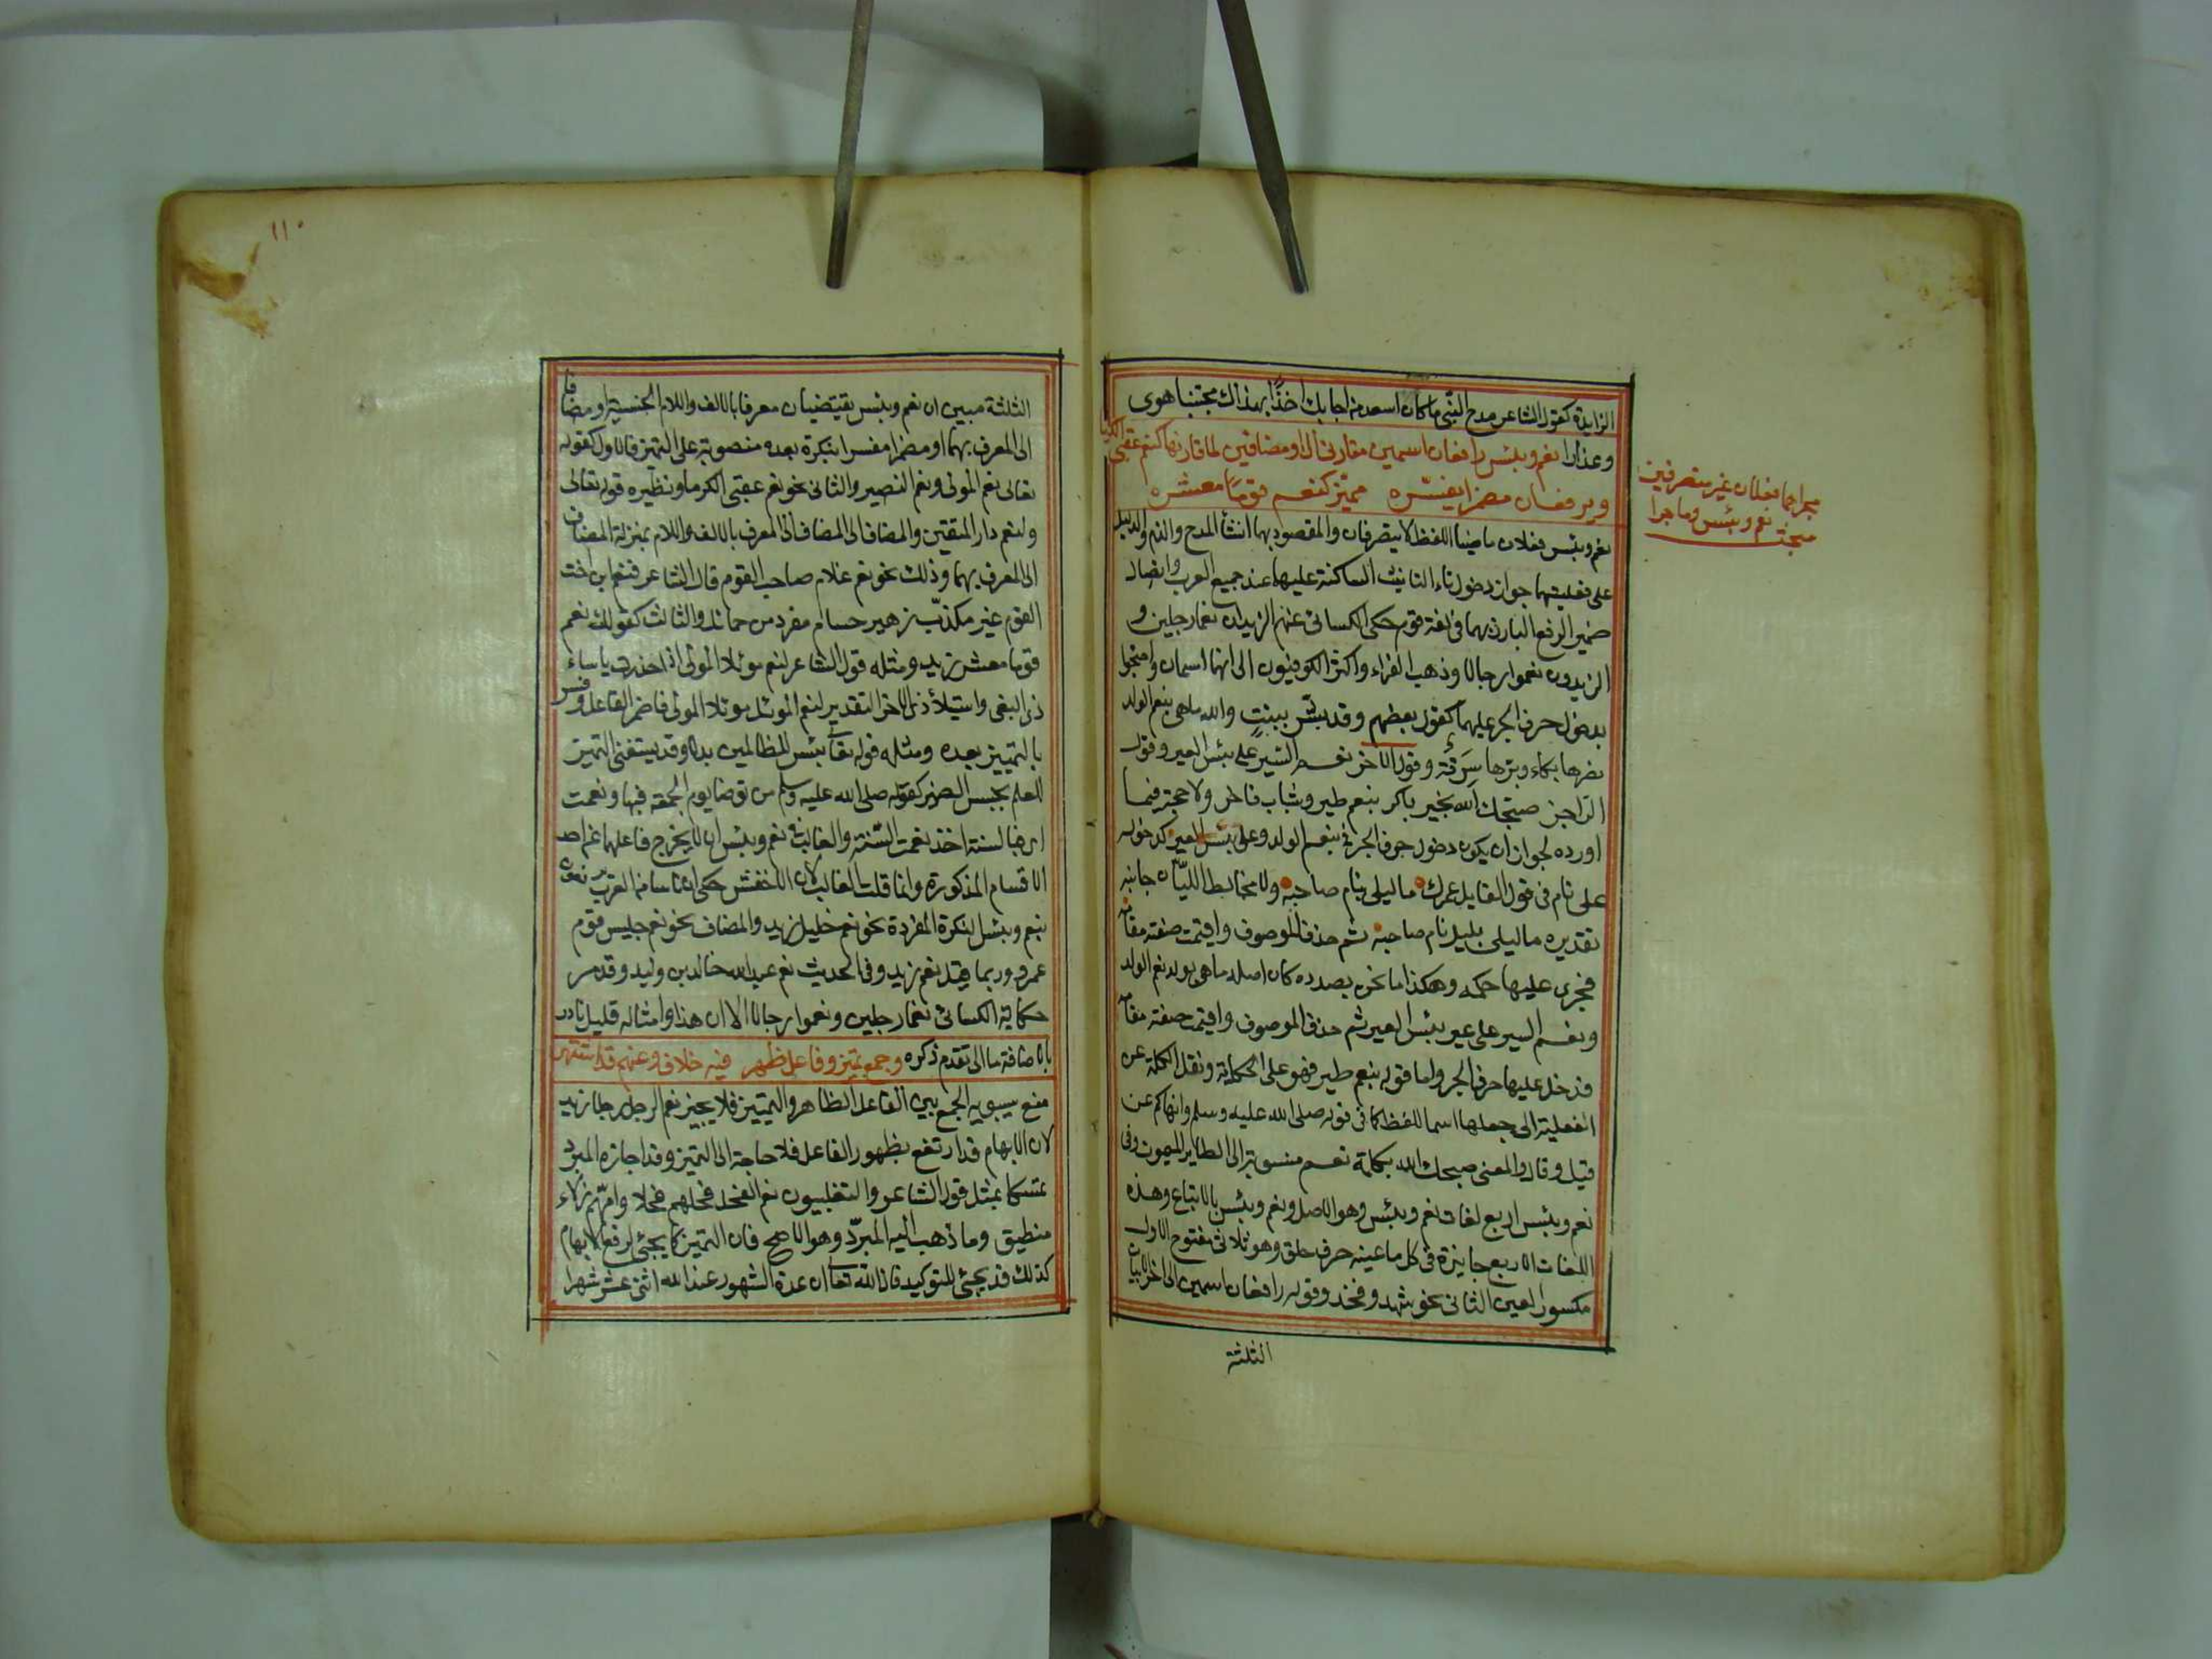 الزايدة كقول الشاعر مدح النبي ما كان اسعد من اجابك اخذًا بهداك مجتنبا هوى
وعنادا نعم وبئس رافعان اسمين مقارنى ال او مضافين لما قارنها كنعم عقبى الكرما
ويرفعان مضمرا يفسره مميّز كنعم قومًا معشره
فعلان غير متصرفين
نعم وبئس وما جرا
مجراهما
مبحث
نعم وبئس فعلان ماضيا اللفظ لا يتصرفان والمقصود بهما انشأ المدح والذم والدليل
على فعليتهما جواز دخول تاء التانيث الساكنة عليهما عند جميع العرب واتصال
ضمير الرفع البارز بهما فى لغة قوم حكى الكسائى عنهم الزيدان نعما رجلين و
الزيدون نعموا رجالا وذهب الفراء واكثر الكوفيون الى انهما اسمان واحتجوا
بدخول حرف الجر عليهما كقول بعضهم وقد بشّر ببنتٍ والله ماهى بنعم الولد
نصرها بكاء وبرّها سَرِقَة وقول الاخر نعم السير على بئس العير وقول
الراجز صبّحك الله بخير باكر بنعم طير وشباب فاخر ولا حجة فيما
اورده لجواز ان يكون دخول حرف الجر فى بنعم الولد وعلى بئس العير كدخوله
على نام فى قول القايل عمرك ما ليلى بنام صاحبه ولا مخالط الليّان جانبه
تقديره ما ليلى بليل نام صاحبه ثم حذف الموصوف واقيمت صفته مقامه
فجرى عليها حكمه وهكذا ما نحن بصدده كان اصله ماهى بولد نعم الولد
ونعم السير على عير بئس العير ثم حذف الموصوف واقيمت صفته مقامه
فدخل عليها حرف الجر واما قوله بنعم طير فهو على الحكاية ونقل الكلمة عن
الفعلية الى جعلها اسما للفظ كما فى قوله صلى الله عليه وسلم وانهاكم عن
قيل وقال والمعنى صبحك الله بكلمة نعم منسوبة الى الطاير الميمون وفى
نعم وبئس اربع لغات نعم وبئس وهو الاصل ونعم وبئس بالاتباع وهذه
اللغات الاربع جايزة فى كل ما عينه حرف حلق وهو ثلاثى مفتوح الاول
مكسور العين الثانى نحو شهد وفخذ وقوله رافعان اسمين الى اخر الابيات
الثلثة
١١٠
الثلثة مبين ان نعم وبئس يقتضيان معرفا بالالف واللام الجنسية او مضافا
الى المعرف بهما او مضمرا مفسرا بنكرة بعده منصوبة على التمييز فالاول كقوله
تعالى نعم المولى ونعم النصير والثانى نحو نعم عقبى الكرما ونظيره قوله تعالى
ولنعم دار المتقين والمضاف الى المضاف الى المعرف بالالف واللام بمنزلة المضاف
الى المعرف بهما وذلك نحو نعم غلام صاحب القوم قال الشاعر فنعم ابن اخت
القوم غير مكذّب زهير حسام مفرد من حمائل والثالث كقولك نعم
قوما معشر زيد ومثله قول الشاعر لنعم موئلا المولى اذا حذرت باساء
ذى البغى واستيلاء ذى الاخر التقدير لنعم الموئل موئلا المولى فاضمر الفاعل وفسر
بالتمييز بعده ومثله قوله تعالى بئس للظالمين بدلا وقد يستغنى التمييز
للعلم بجنس الضمير كقوله صلى الله عليه وسلم من توضا يوم الجمعة فبها ونعمت
اى فبالسنة اخذ نعمت السّنة والغالب فى نعم وبئس ان لا يخرج فاعلهما عن احد
الاقسام المذكورة وانما قلت الغالب لان الاخفش حكى ان ناسا من العرب يرفعون
بنعم وبئس النكرة المفردة نحو نعم خليل زيد والمضاف نحو نعم جليس قوم
عمرو وربما قيل نعم زيد وفى الحديث نعم عبد الله خالد بن وليد وقد مر
حكاية الكسائى نعما رجلين ونعموا رجالا الا ان هذا وامثاله قليل نادر
بالاضافة ما الى تقدم ذكره وجمع تمييز وفاعل ظهر فيه خلاف وعنهم قد اشتهر
منع سيبويه الجمع بين الفاعل الظاهر والتمييز فلا يجيز نعم الرجل رجلا زيد
لان الابهام قد ارتفع بظهور الفاعل فلا حاجة الى التمييز وقد اجازه المبرّد
متمسكا بمثل قول الشاعر والتغلبيون نعم الفحل فحلهم فحلا وامّهم زلاء
منطيق وما ذهب اليه المبرّد وهو الاصح فان التمييز كما يجئ لرفع الابهام
كذلك قد يجئ للتوكيد قال الله تعالى ان عدة الشهور عند الله اثنى عشر شهرا